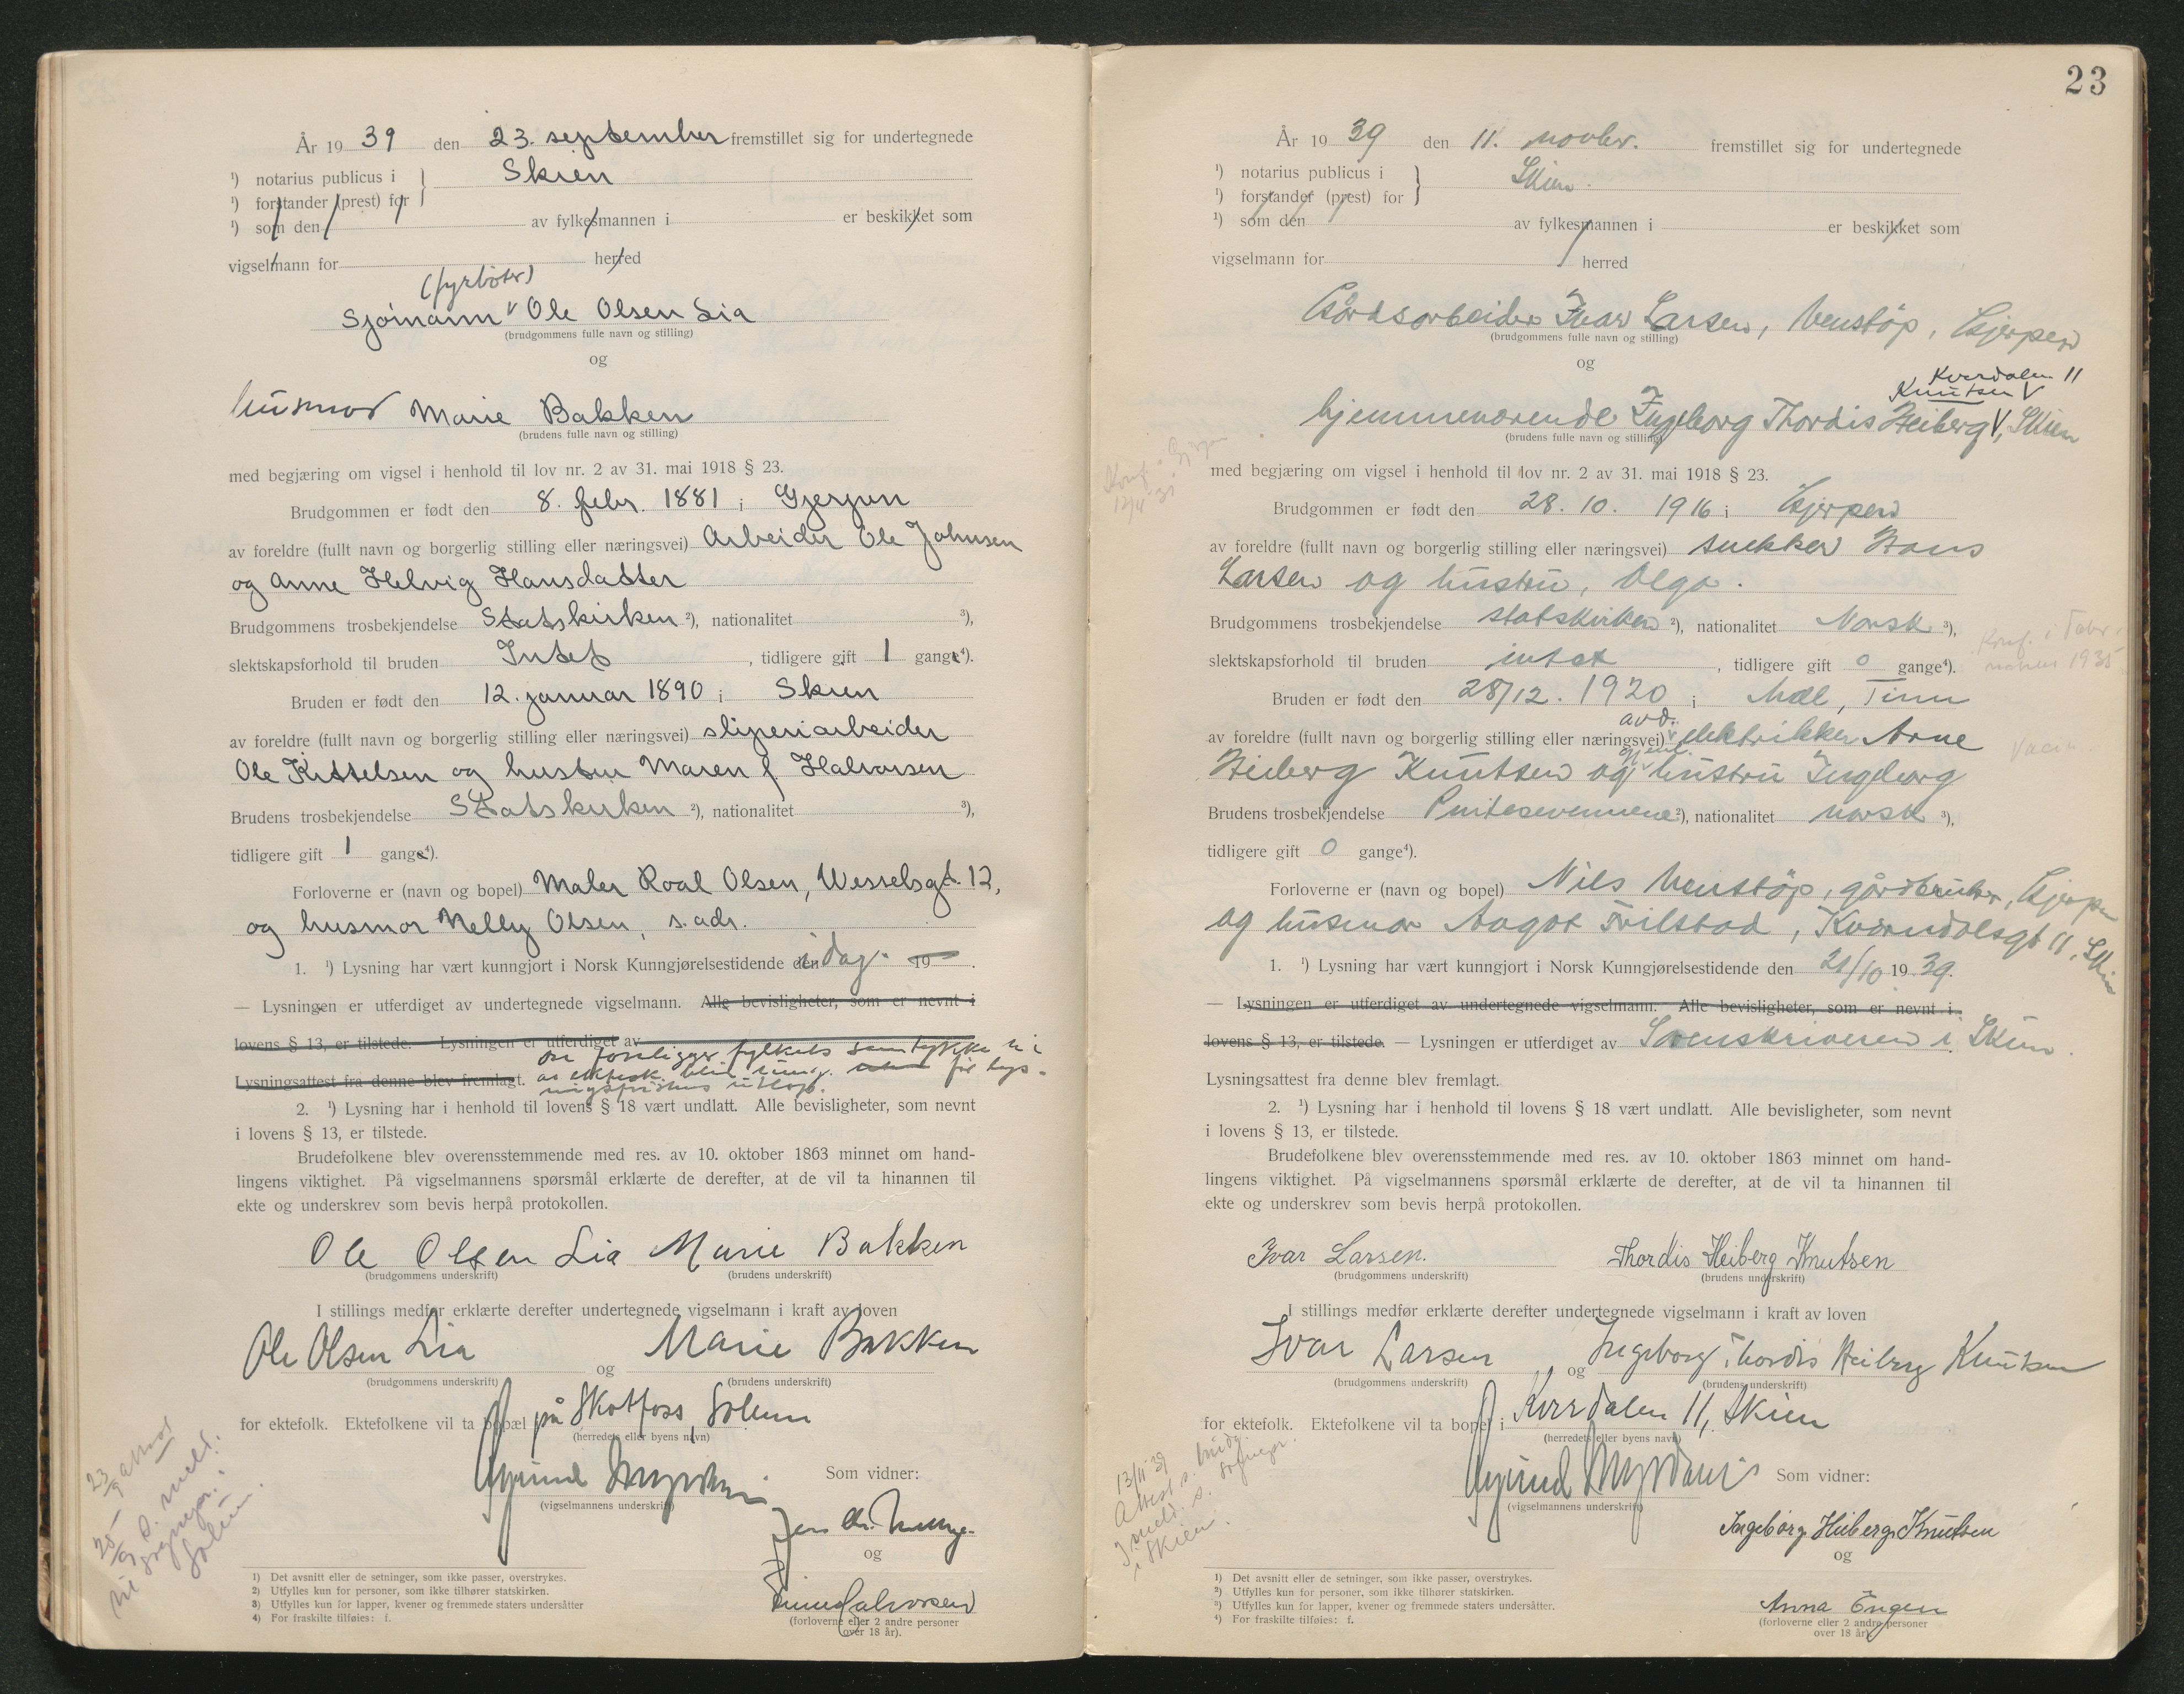 År 19 39 den 23. september fremstillet sig for undertegnede
¹) notarius publicus i } Skien
¹) forstander (prest) for
¹) som den av fylkesmannen i er beskikket som
vigselmann for herred
(fyrbøter)
Sjømann V Ole Olsen Lia
(brudgommens fulle navn og stilling)
og
husmor Marie Bakken
(brudens fulle navn og stilling)
med begjæring om vigsel i henhold til lov nr. 2 av 31. mai 1918 § 23.
Brudgommen er født den 8. febr. 1881 i Gjerpen
av foreldre (fullt navn og borgerlig stilling eller næringsvei) Arbeider Ole Johnsen
og Anne Helvig Hansdatter
Brudgommens trosbekjendelse Statskirken ²), nationalitet ³),
slektskapsforhold til bruden Intet , tidligere gift 1 gange⁴).
Bruden er født den 12. januar 1890 i Skien
av foreldre (fullt navn og borgerlig stilling eller næringsvei) sliperiarbeider
Ole Kittelsen og hustru Maren f. Halvorsen
Brudens trosbekjendelse Statskirken ²), nationalitet ³),
tidligere gift 1 gange⁴).
Forloverne er (navn og bopel) Maler Roal Olsen, Wesselsgt. 12,
og husmor Nelly Olsen, s. adr.
1. ¹) Lysning har vært kunngjort i Norsk Kunngjørelsestidende den idag. 19 .
— Lysningen er utferdiget av undertegnede vigselmann. Alle bevisligheter, som er nevnt i
lovens § 13, er tilstede. — Lysningen er utferdiget av
foreligger fylkets samtykke til
Lysningsattest fra denne blev fremlagt. at ektesk. blir før lys-
ningsfristens utløp.
2. ¹) Lysning har i henhold til lovens § 18 vært undlatt. Alle bevisligheter, som nevnt
i lovens § 13, er tilstede.
Brudefolkene blev overensstemmende med res. av 10. oktober 1863 minnet om hand-
lingens viktighet. På vigselmannens spørsmål erklærte de derefter, at de vil ta hinannen til
ekte og underskrev som bevis herpå protokollen.
Ole Olsen Lia Marie Bakken
(brudgommens underskrift) (brudens underskrift)
I stillings medfør erklærte derefter undertegnede vigselmann i kraft av loven
Ole Olsen Lia og Marie Bakken
(brudgommens underskrift) (brudens underskrift)
for ektefolk. Ektefolkene vil ta bopæl på Skotfoss, Solum
(herredets eller byens navn)
Som vidner:
(vigselmannens underskrift)
Jens
og
Halvorsen
(forloverne eller 2 andre personer
over 18 år).
23/9 attest
25/9 s. meld.
til sognepr. i
Solum.
1) Det avsnitt eller de setninger, som ikke passer, overstrykes.
2) Utfylles kun for personer, som ikke tilhører statskirken.
3) Utfylles kun for lapper, kvener og fremmede staters undersåtter
4) For fraskilte tilføies: f.
23
År 19 39 den 11. novbr. fremstillet sig for undertegnede
¹) notarius publicus i } Skien.
¹) forstander (prest) for
¹) som den av fylkesmannen i er beskikket som
vigselmann for herred
Gårdsarbeider Ivar Larsen, Venstøp, Gjerpen
(brudgommens fulle navn og stilling)
og
Kverdalen 11
Knutsen V
hjemmeværende Ingeborg Thordis Heiberg V, Skien
(brudens fulle navn og stilling)
Konf. i Gjerpen
12/4 31
med begjæring om vigsel i henhold til lov nr. 2 av 31. mai 1918 § 23.
Brudgommen er født den 28. 10. 1916 i Gjerpen
av foreldre (fullt navn og borgerlig stilling eller næringsvei) snekker Hans
Larsen og hustru, Olga.
Brudgommens trosbekjendelse statskirken ²), nationalitet Norsk ³),
slektskapsforhold til bruden intet , tidligere gift 0 gange⁴).
Konf. i Taber-
naklet 1935
Bruden er født den 28/12. 1920 i Mæl, Tinn
avd.
av foreldre (fullt navn og borgerlig stilling eller næringsvei) elektriker Arne
Heiberg Knutsen og hustru Ingeborg
Brudens trosbekjendelse Pintsevennene ²), nationalitet norsk ³),
tidligere gift 0 gange⁴).
Forloverne er (navn og bopel) Nils Venstøp, gårdbruker, Gjerpen
og husmor Aagot Trilstad, Kverndalsgt 11, Skien
1. ¹) Lysning har vært kunngjort i Norsk Kunngjørelsestidende den 21/10 19 39.
— Lysningen er utferdiget av undertegnede vigselmann. Alle bevisligheter, som er nevnt i
lovens § 13, er tilstede. — Lysningen er utferdiget av Sorenskriveren i Skien.
Lysningsattest fra denne blev fremlagt.
2. ¹) Lysning har i henhold til lovens § 18 vært undlatt. Alle bevisligheter, som nevnt
i lovens § 13, er tilstede.
Brudefolkene blev overensstemmende med res. av 10. oktober 1863 minnet om hand-
lingens viktighet. På vigselmannens spørsmål erklærte de derefter, at de vil ta hinannen til
ekte og underskrev som bevis herpå protokollen.
Ivar Larsen. Thordis Heiberg Knutsen
(brudgommens underskrift) (brudens underskrift)
I stillings medfør erklærte derefter undertegnede vigselmann i kraft av loven
Ivar Larsen og Ingeborg Thordis Heiberg Knutsen
(brudgommens underskrift) (brudens underskrift)
for ektefolk. Ektefolkene vil ta bopel i Kverdalen 11, Skien
(herredets eller byens navn)
Som vidner:
(vigselmannens underskrift)
Ingeborg Heiberg Knutsen
og
Anna Engen
(forloverne eller 2 andre personer
over 18 år).
13/11 39
Attest s.
meld. s. sognepr.
i Skien.
1) Det avsnitt eller de setninger, som ikke passer, overstrykes.
2) Utfylles kun for personer, som ikke tilhører statskirken.
3) Utfylles kun for lapper, kvener og fremmede staters undersåtter.
4) For fraskilte tilføies: f.